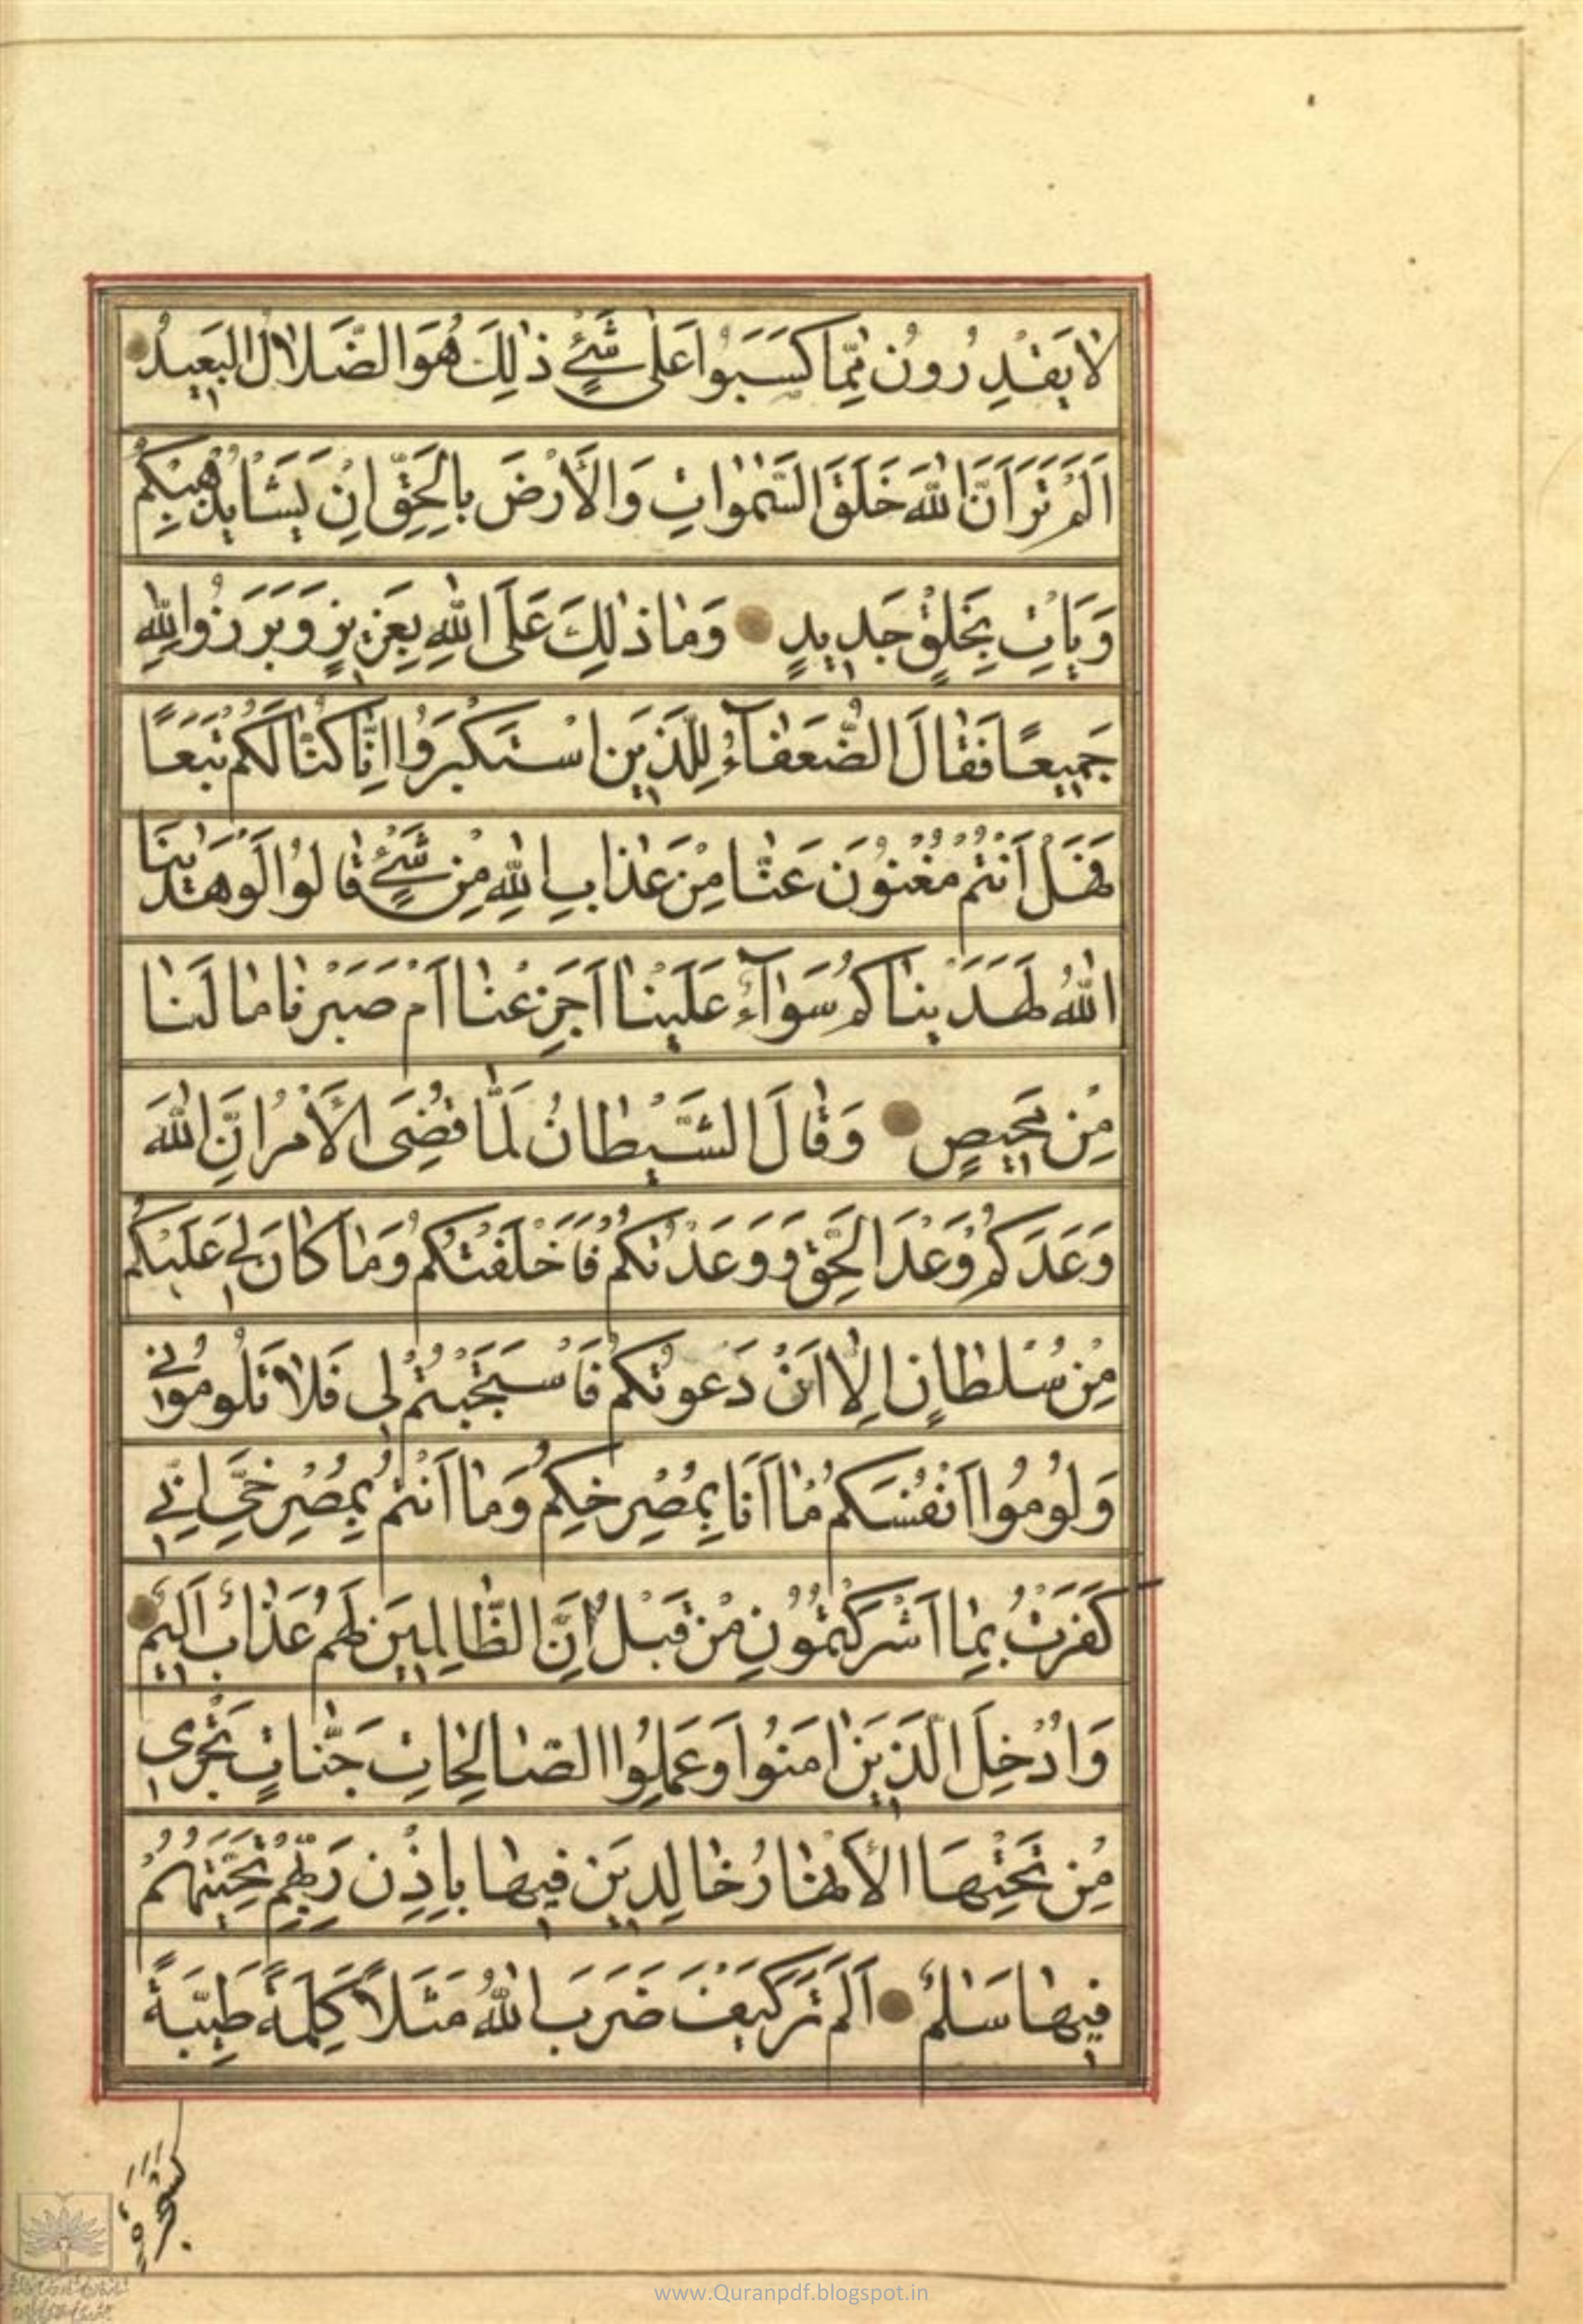 لا يَقْدِرُونَ مِمّا كَسَبُوا عَلى شَيْءٍ ذٰلِكَ هُوَ الضَّلالُ الْبَعِيدُ
اَلَمْ تَرَ اَنَّ اللّٰهَ خَلَقَ السَّمٰواتِ وَالْاَرْضَ بِالْحَقِّ اِنْ يَشَاْ يُذْهِبْكُمْ
وَيَاْتِ بِخَلْقٍ جَدِيدٍ وَمٰا ذٰلِكَ عَلَى اللّٰهِ بِعَزِيزٍ وَبَرَزُوا لِلّٰهِ
جَمِيعًا فَقٰالَ الضُّعَفٰآءُ لِلَّذِينَ اسْتَكْبَرُوا اِنّٰا كُنّٰا لَكُمْ تَبَعًا
فَهَلْ اَنْتُمْ مُغْنُونَ عَنّٰا مِنْ عَذٰابِ اللّٰهِ مِنْ شَيْءٍ قٰالُوا لَوْ هَدٰينَا
اللّٰهُ لَهَدَيْنٰاكُمْ سَوٰآءٌ عَلَيْنٰا اَجَزِعْنٰا اَمْ صَبَرْنٰا مٰا لَنٰا
مِنْ مَحِيصٍ وَقٰالَ الشَّيْطٰانُ لَمّٰا قُضِيَ الْاَمْرُ اِنَّ اللّٰهَ
وَعَدَكُمْ وَعْدَ الْحَقِّ وَوَعَدْتُكُمْ فَاَخْلَفْتُكُمْ وَمٰا كٰانَ لِي عَلَيْكُمْ
مِنْ سُلْطٰانٍ اِلّٰا اَنْ دَعَوْتُكُمْ فَاسْتَجَبْتُمْ لِي فَلٰا تَلُومُونِي
وَلُومُوا اَنْفُسَكُمْ مٰا اَنَا بِمُصْرِخِكُمْ وَمٰا اَنْتُمْ بِمُصْرِخِيَّ اِنِّي
كَفَرْتُ بِمٰا اَشْرَكْتُمُونِ مِنْ قَبْلُ اِنَّ الظّٰالِمِينَ لَهُمْ عَذٰابٌ اَلِيمٌ
وَاُدْخِلَ الَّذِينَ اٰمَنُوا وَعَمِلُوا الصّٰالِحٰاتِ جَنّٰاتٍ تَجْرِي
مِنْ تَحْتِهَا الْاَنْهٰارُ خٰالِدِينَ فِيهٰا بِاِذْنِ رَبِّهِمْ تَحِيَّتُهُمْ
فِيهٰا سَلٰمٌ اَلَمْ تَرَ كَيْفَ ضَرَبَ اللّٰهُ مَثَلًا كَلِمَةً طَيِّبَةً
كَشَجَرَةٍ
www.Quranpdf.blogspot.in